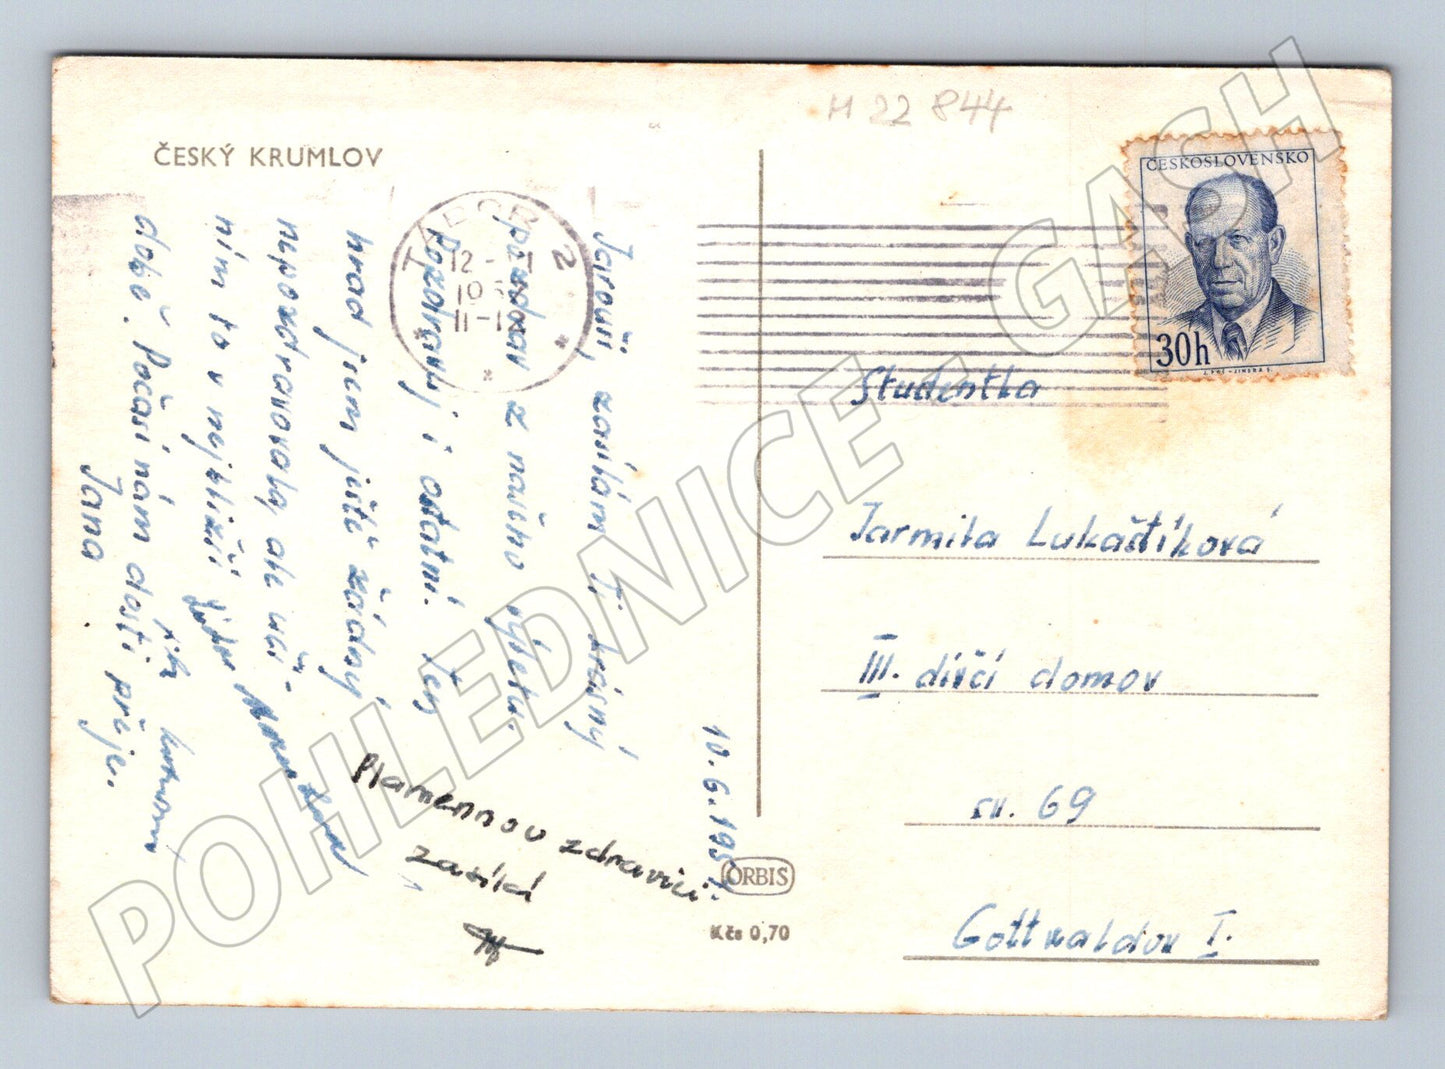 M 22 844
ČESKÝ KRUMLOV
ČESKOSLOVENSKO
30h
TÁBOR 2
12
Jarouš, zasílám Ti krásný
pozdrav z našeho výletu.
Pozdravuj i ostatní. Ten
hrad jsem ještě žádný
nepozdravovala, ale uči-
ním to v nejbližší
době. Počasí nám dosti přeje.
Jana
Plamennou zdravici
zasílá
10. 6. 195
Studentka
Jarmila Lukaštíková
III. dívčí domov
sv. 69
Gottwaldov I.
ORBIS
Kčs 0,70
POHLEDNICE - GASH